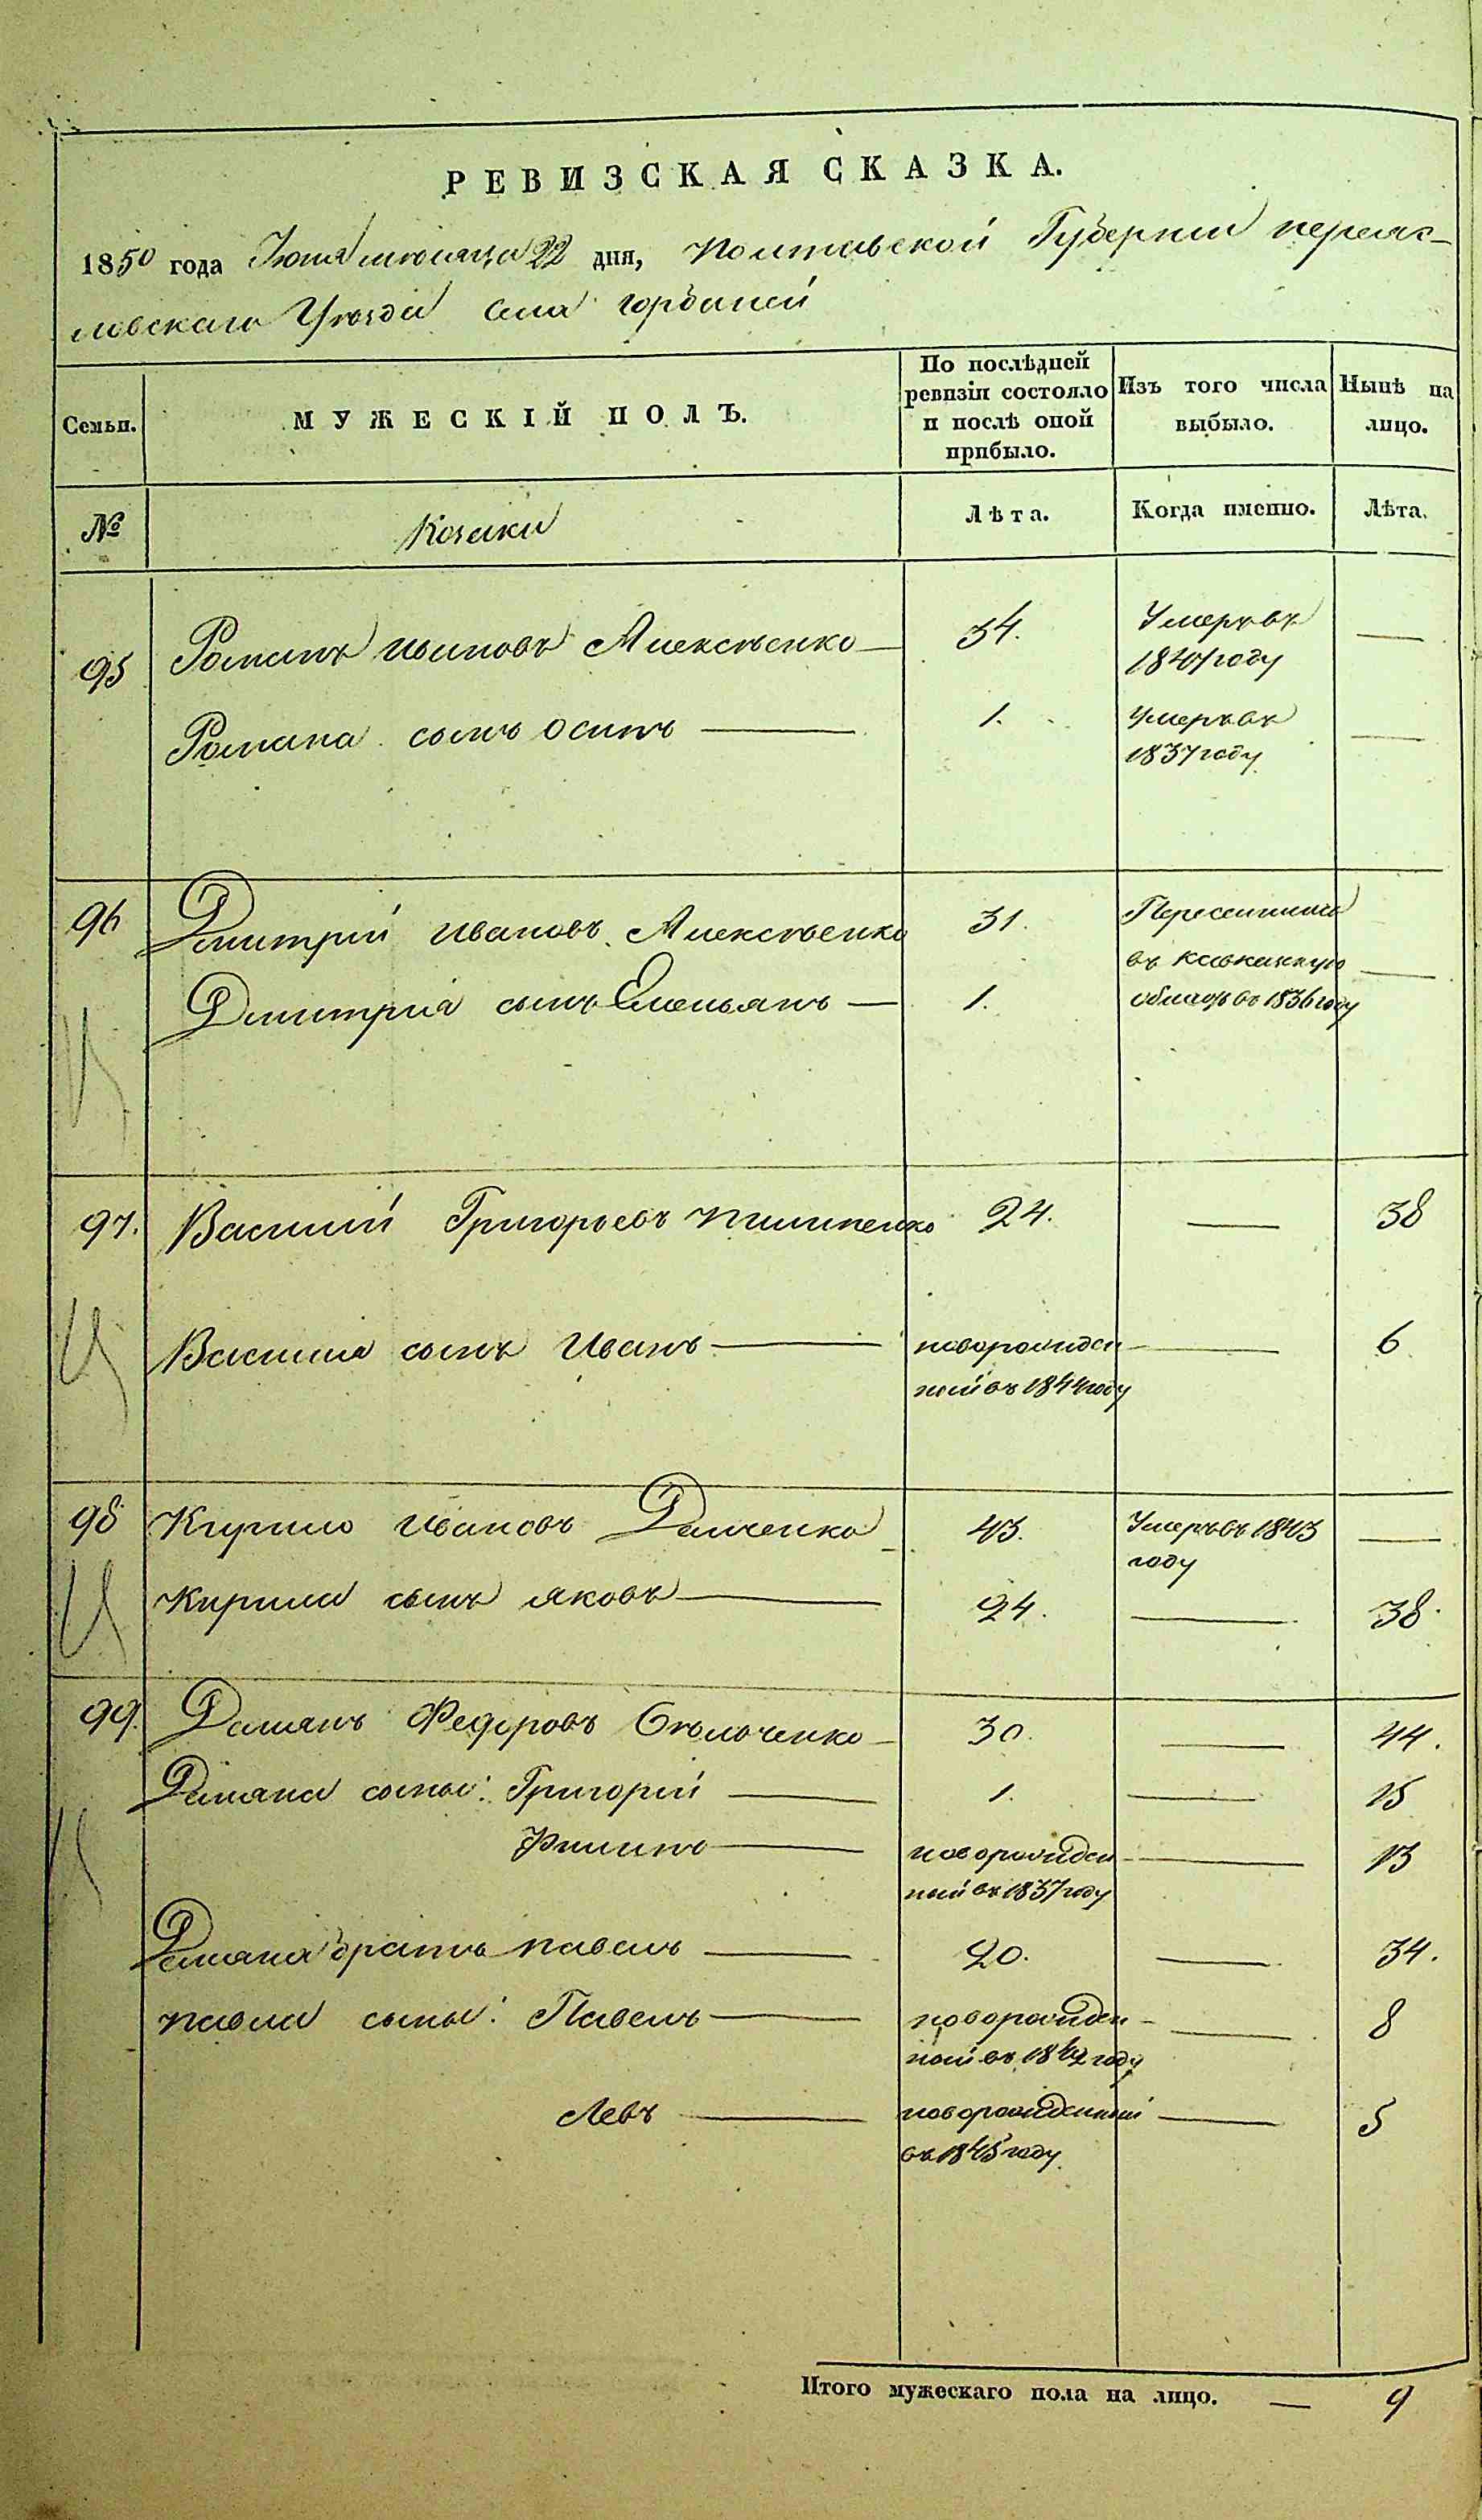 РЕВИЗСКАЯ СКАЗКА.
1850 года Июня месяца 22 дня, Полтавской Губернии переяс-
лавскаго Уезда села горбаней
Семьи.
МУЖЕСКІЙ ПОЛЪ.
По послѣдней ревизіи состояло и послѣ оной прибыло.
Изъ того числа выбыло.
Нынѣ на лицо.
№
Козаки
Лѣта.
Когда именно.
Лѣта.
95 Романъ ивановъ Алексѣенко — 34. Умеръ въ 1841 году —
Романа сынъ осипъ — 1. умеръ въ 1837 году —
96 Дмитрий ивановъ Алексѣенко 31. Переселились
въ кавказкую —
Дмитрия сынъ Емельянъ — 1. область въ 1836 году
97. Василий Григорьевъ пилипенко 24. — 38
Василия сынъ Иванъ — новорожден — 6
ный въ 1844 году
98 Кирило Ивановъ Демченко 43. Умеръ въ 1843 —
году
Кирила сынъ яковъ — 24. — 38.
99. Демянъ Федоровъ — 30. — 44.
Демяна сыны: Григорій — 1. — 15
Филипъ — новорожден — 13
ный въ 1837 году
Демяна братъ павелъ — 20. — 34.
павла сыны: Павелъ — новорожден — 8
ный въ 1842 году
Левъ — новорожденный — 5
въ 1845 году
Итого мужескаго пола на лицо. — 9